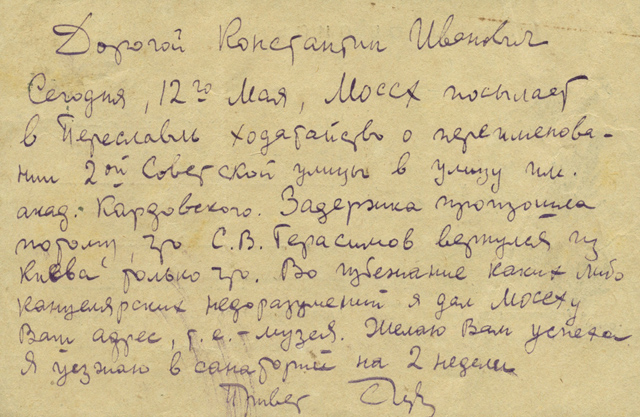 Дорогой Константин Иванович
Сегодня, 12го мая, Моссх посылает
в Переславль ходатайство о переименова-
нии 2ой Советской улицы в улицу им.
акад. Кардовского. Задержка произошла
потому, что С.В. Герасимов вернулся из
Киева только что. Во избежание каких либо
канцелярских недоразумений я дал Моссху
Ваш адрес, т.е. - музея. Желаю Вам успеха
Я уезжаю в санаторий на 2 недели
Привет